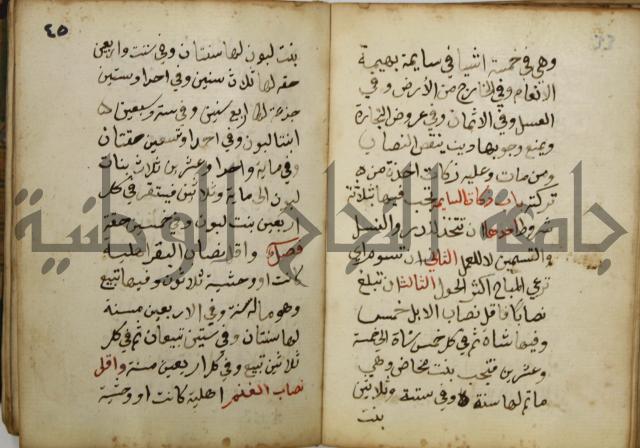 وهي في خمسة اشيا في سايمة بهيمة
الانعام وفي الخارج من الأرض وفي
العسل وفي الاثمان وفي عروض التجارة
ويمنع وجوبها دين ينقص النصاب
ومن مات وعليه زكات اخذة من
تركته باب زكاة السايمه تجب فيها بثلاثة
شروط احدها ان تتخذ للدر والنسل
والتسمين لا للعمل الثاني ان تسوم اي
ترعي المباح اكثر الحول الثالث ان تبلغ
نصابا فاقل نصاب الابل خمس
وفيها شاة ثم في كل خمس شاة الى خمسة
وعشرين فتجب بنت مخاض وهي
ما تم لها سنة وفي ستة وثلاثين
بنت
٤٥
بنت لبون لها سنتان وفي ست واربعين
حقه لها ثلاث سنين وفي احدا وستين
جذعة لها اربع سنين وفي ستة وسبعين
ابنتا لبون وفي احدا وتسعين حقتان
وفي ماية واحدا وعشرين ثلاث بنات
لبون الى ماية وثلاثين فيستقر في كل
اربعين بنت لبون وفي خمسين حقة
فصل واقل نصاب البقر اهلية
كانت او وحشية ثلاثون وفيها تبيع
وهو ماله سنة وفي الاربعين مسنة
لها سنتان وفي ستين تبيعان ثم في كل
ثلاثين تبيع وفي كل اربعين مسنة واقل
نصاب الغنم اهلية كانت او وحشية
جامعة النجاح الوطنية